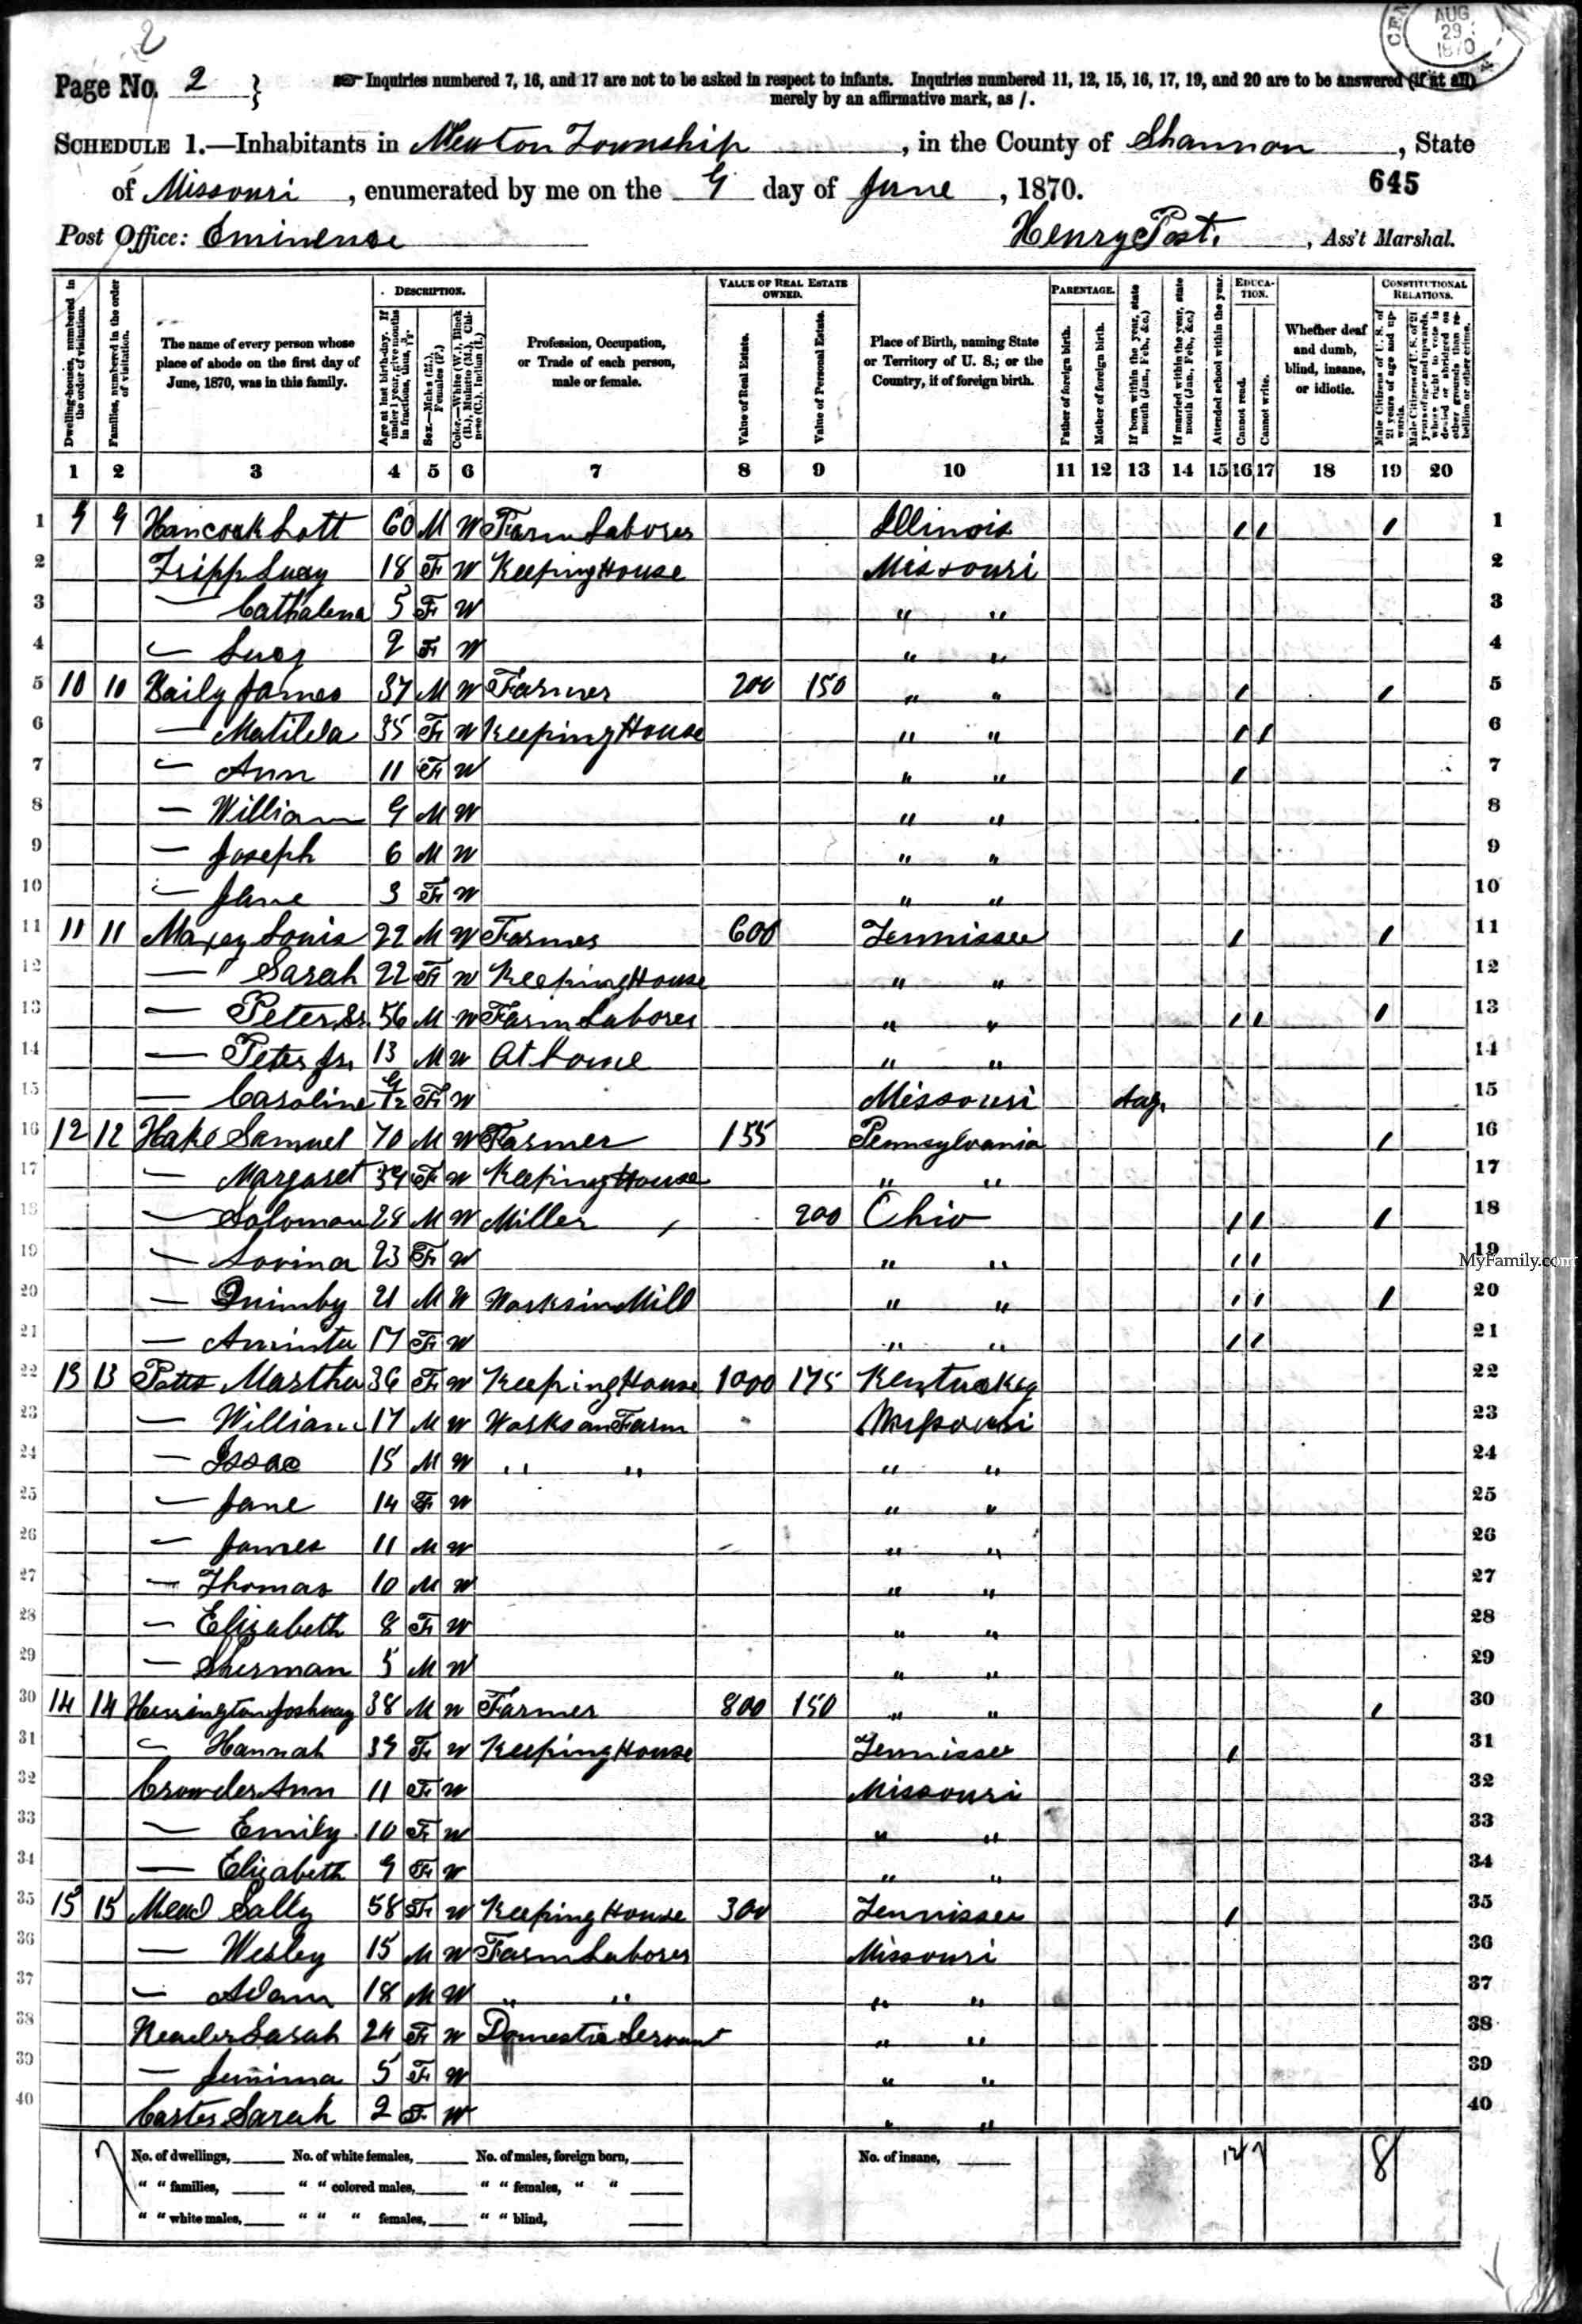 2
CEN AUG 29 1870
Page No. 2 } Inquiries numbered 7, 16, and 17 are not to be asked in respect to infants. Inquiries numbered 11, 12, 15, 16, 17, 19, and 20 are to be answered (if at all)
merely by an affirmative mark, as /.
SCHEDULE 1.—Inhabitants in Newton Township, in the County of Shannon, State
of Missouri, enumerated by me on the 9 day of June, 1870. 645
Post Office: Eminense Henry Post, Ass't Marshal.
DESCRIPTION. VALUE OF REAL ESTATE OWNED. PARENTAGE. EDUCATION. CONSTITUTIONAL RELATIONS.
Dwelling-houses, numbered in the order of visitation.
Families, numbered in the order of visitation.
The name of every person whose place of abode on the first day of June, 1870, was in this family.
Age at last birth-day. If under 1 year, give months in fractions, thus, 3/12.
Sex.—Males (M.), Females (F.)
Color.—White (W.), Black (B.), Mulatto (M.), Chinese (C.), Indian (I.)
Profession, Occupation, or Trade of each person, male or female.
Value of Real Estate.
Value of Personal Estate.
Place of Birth, naming State or Territory of U. S.; or the Country, if of foreign birth.
Father of foreign birth.
Mother of foreign birth.
If born within the year, state month (Jan., Feb., &c.)
If married within the year, state month (Jan., Feb., &c.)
Attended school within the year.
Cannot read.
Cannot write.
Whether deaf and dumb, blind, insane, or idiotic.
Male Citizens of U. S. of 21 years of age and upwards.
Male Citizens of U. S. of 21 years of age and upwards, whose right to vote is denied or abridged on other grounds than rebellion or other crime.
1 2 3 4 5 6 7 8 9 10 11 12 13 14 15 16 17 18 19 20
1 9 9 Hancock Lott 60 M W Farm Laborer Illinois / / / 1
2 Tripp Lucy 18 F W Keeping House Missouri 2
3 — Cathalena 5 F W " " 3
4 — Lucy 2 F W " " 4
5 10 10 Baily James 37 M W Farmer 200 150 " " / / 5
6 — Matilda 35 F W Keeping House " " / / 6
7 — Ann 11 F W " " / 7
8 — William 9 M W " " 8
9 — Joseph 6 M W " " 9
10 — Jane 3 F W " " 10
11 11 11 Maxey Louis 22 M W Farmer 600 Tennissee / / 11
12 — Sarah 22 F W Keeping House " " 12
13 — Peter, Sr. 56 M W Farm Laborer " " / / / 13
14 — Peter Jr. 13 M W At home " " 14
15 — Caroline 9/12 F W Missouri Aug. 15
16 12 12 Hake Samuel 70 M W Farmer 155 Pennsylvania / 16
17 — Margaret F W Keeping House " " 17
18 — Solomon 28 M W Miller 200 Ohio / / / 18
19 — Lovina 23 F W " " / / 19
MyFamily.com
20 — Quimby 21 M W Works in Mill " " / / / 20
21 — Aminta 17 F W " " / / 21
22 13 13 Martha 36 F W Keeping House 1000 175 Kentuckey 22
23 — William 17 M W Works on Farm Missouri 23
24 — Issac 15 M W " " " " 24
25 — Jane 14 F W " " 25
26 — James 11 M W " " 26
27 — Thomas 10 M W " " 27
28 — Elizabeth 8 F W " " 28
29 — Sherman 5 M W " " 29
30 14 14 Herrington Joshuay 38 M W Farmer 800 150 " " / 30
31 — Hannah 39 F W Keeping House Tennissee / 31
32 Crowder Ann 11 F W Missouri 32
33 — Emily 10 F W " " 33
34 — Elizabeth 9 F W " " 34
35 15 15 Mead Sally 58 F W Keeping House 300 Tennissee / 35
36 — Wesley 15 M W Farm Laborer Missouri 36
37 — Adam 18 M W " " " " 37
38 Sarah 24 F W Domestic Servant " " 38
39 — Jemima 5 F W " " 39
40 Carter Sarah 2 F W " " 40
No. of dwellings, No. of white females, No. of males, foreign born, No. of insane, 12 7 8
" " families, " " colored males, " " females, " "
" " white males, " " " females, " " blind,